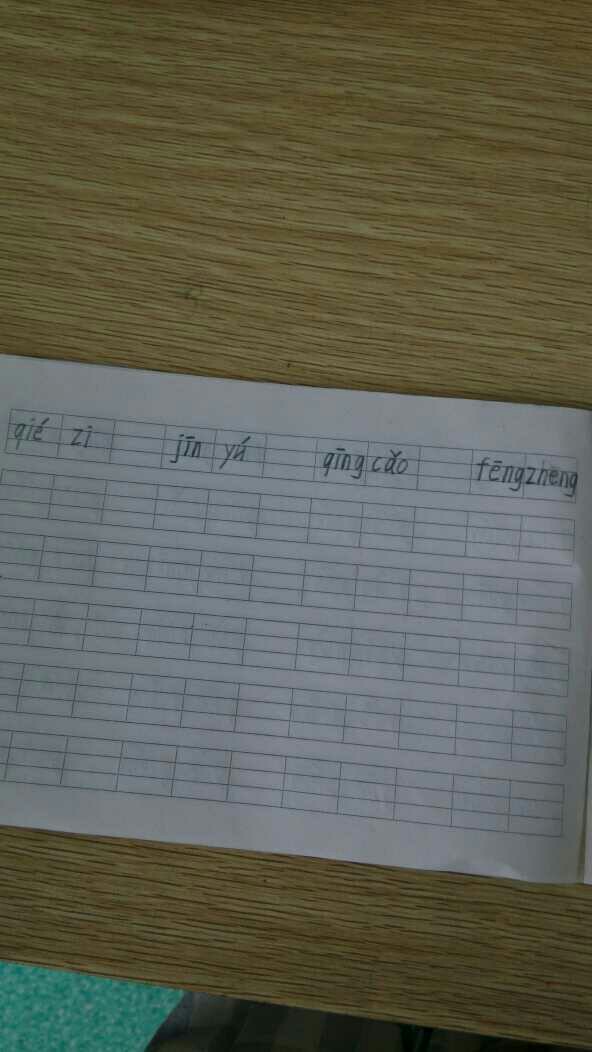 qié zi jīn yú qīng cǎo fēng zheng